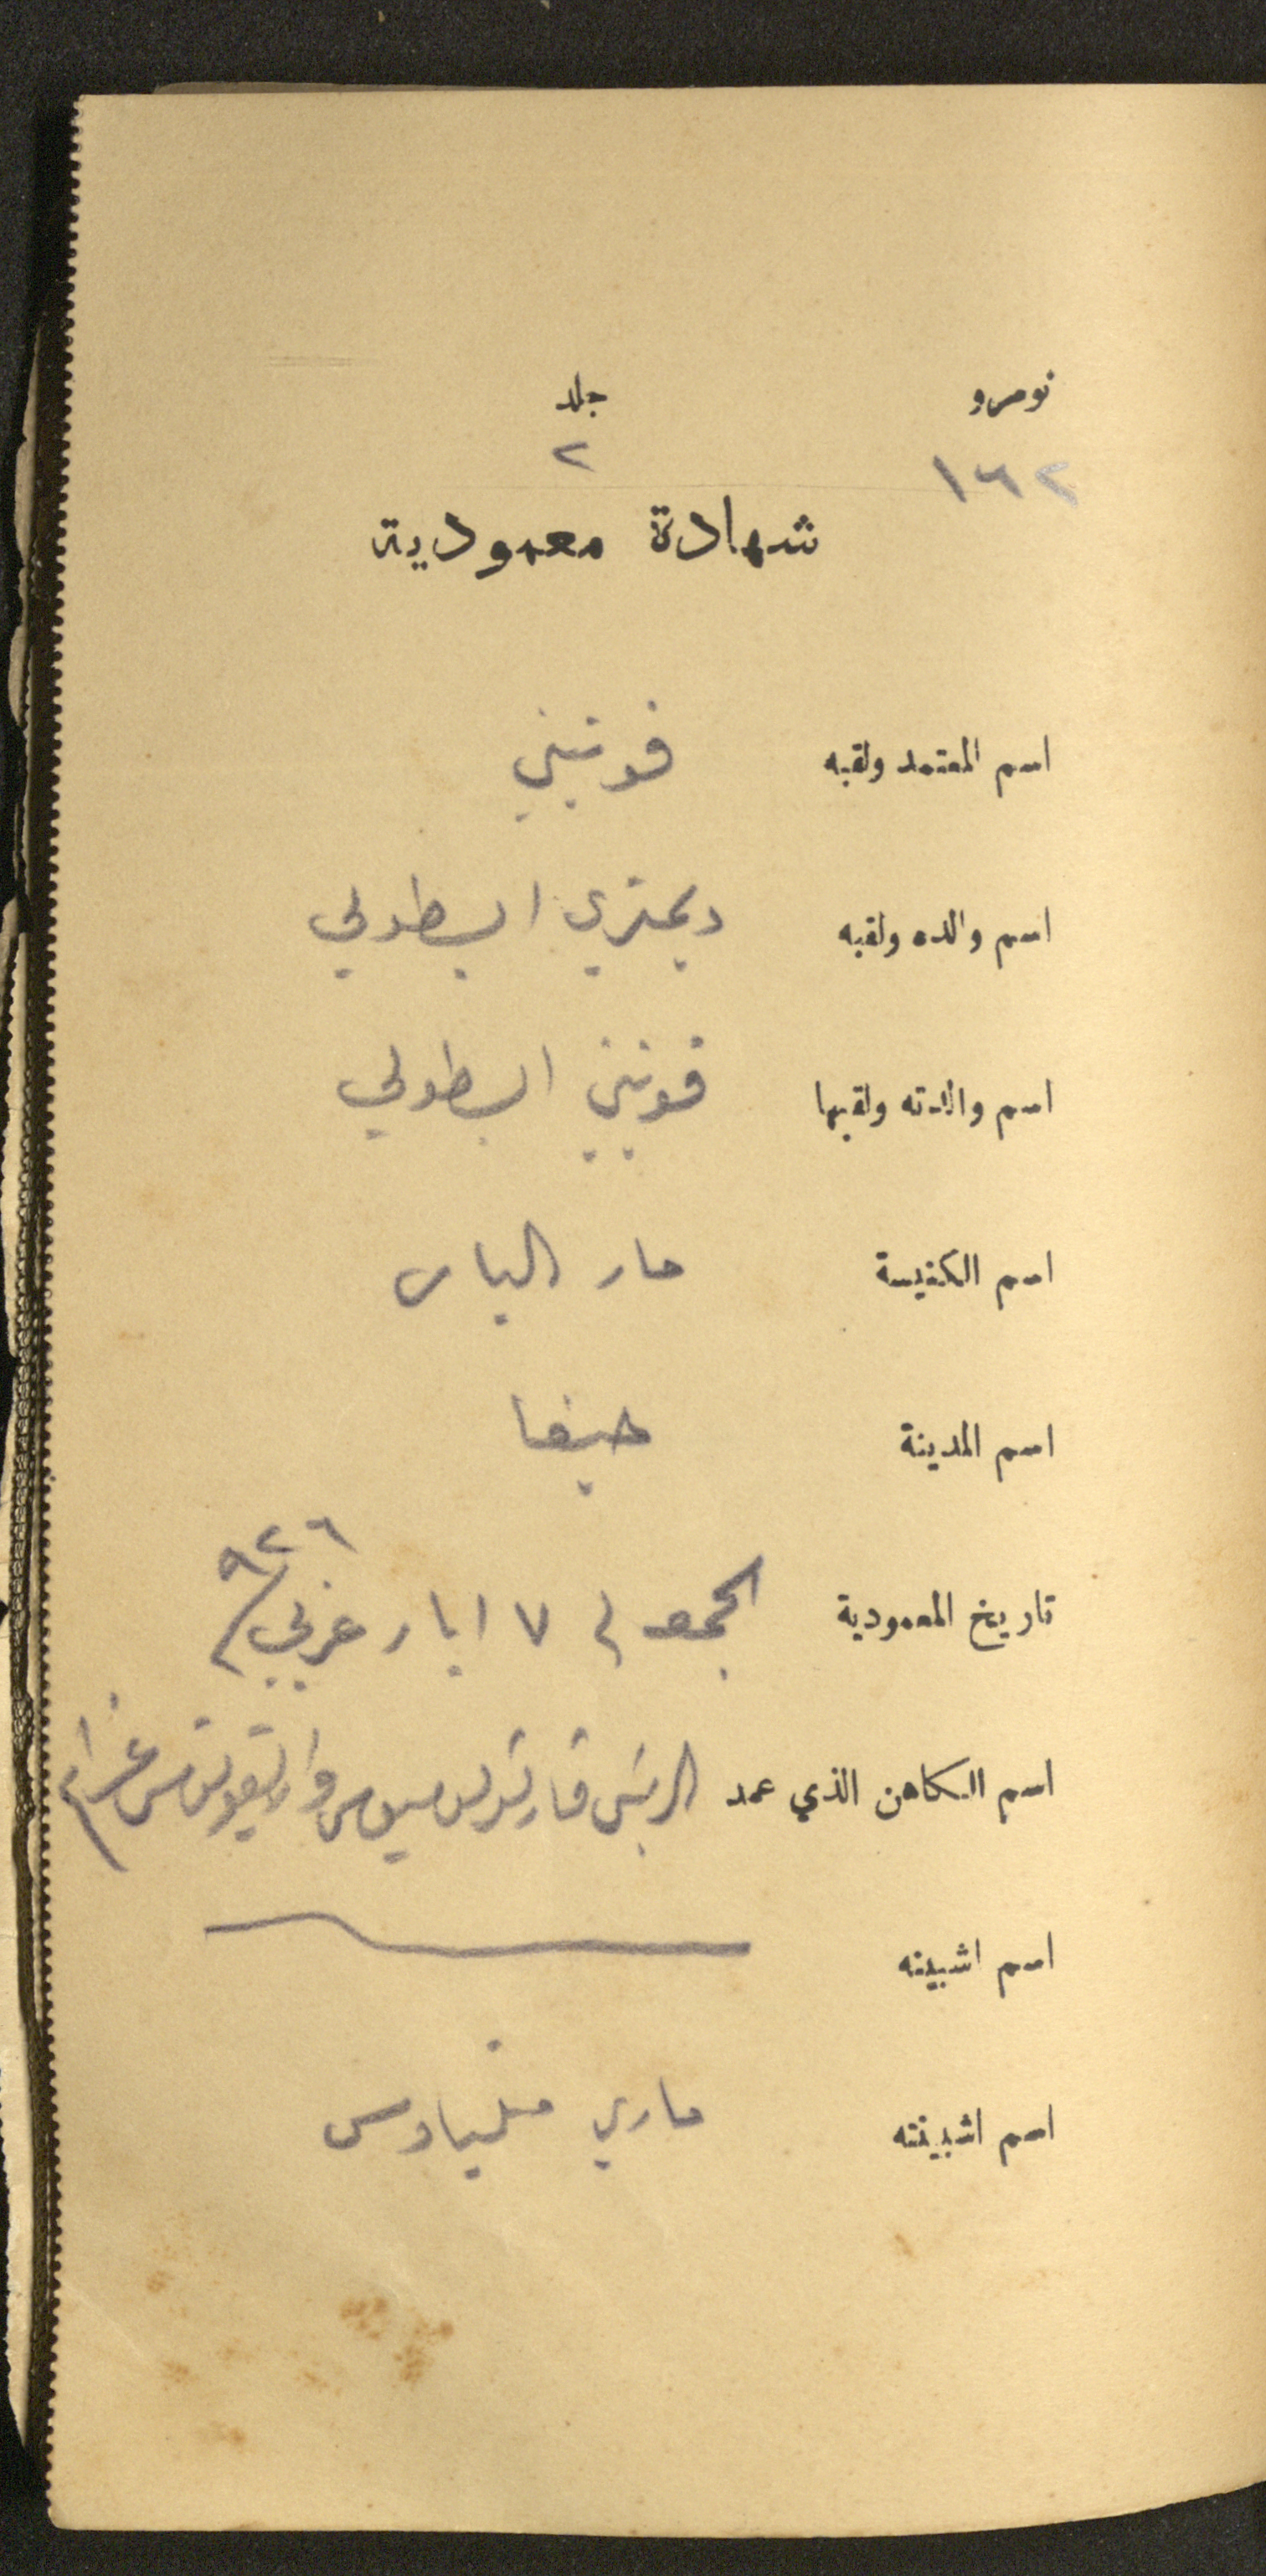 نومرو جلد
١٦٢ ٢
شهادة معمودية
اسم المعتمد ولقبه فوتيني
اسم والده ولقبه ديمتري ابسطولي
اسم والدته ولقبها فوتيني ابسطولي
اسم الكنيسة مار الياس
اسم المدينة حيفا
تاريخ المعمودية الجمعه في ٧ ايار غربي ٩٢٦
اسم الكاهن الذي عمد الريس
اسم اشبينه
اسم اشبينته ماري